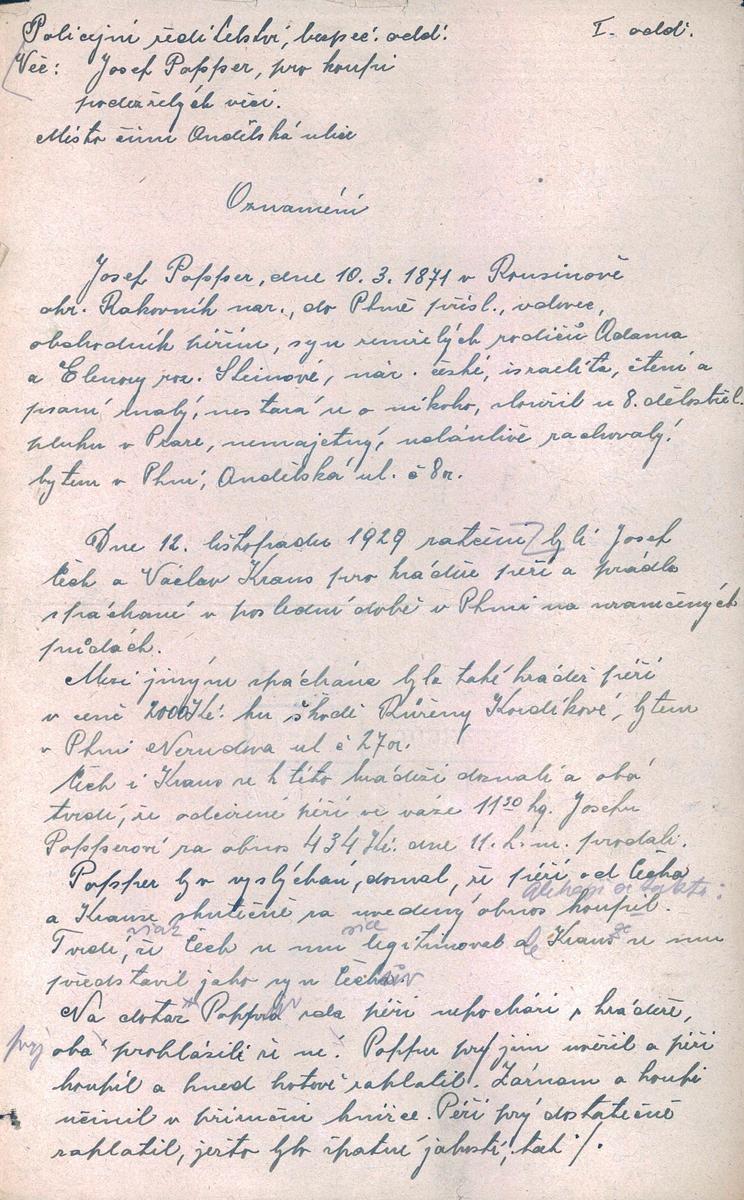 Policejní ředitelství, bezpeč. odd. I. odd.
Věc: Josef Popper, pro koupi
podezřelých věcí.
Místo činu Andělská ulice
Oznamení
Josef Popper, dne 10. 3. 1871 v Rousinově
okr. Rakovník nar., do Plzně přísl., vdovec,
obchodník peřím, syn zemřelých rodičů Adama
a Elenory roz. Steinové, nár. české, israelita, čtení a
psaní znalý, nestará se o nikoho, sloužil u 8. dělostřel.
pluku v Praze, nemajetný, udánlivě zachovalý,
bytem v Plzni, Andělská ul. č 8n.
Dne 12. listopadu 1929 zatčeni byli Josef
Čech a Václav Kraus pro krádže peří a prádla
spáchané v poslední době v Plzni na uzamčených
půdách.
Mezi jiným spáchána byla také krádež peří
v ceně 2000 Kč. ku škodě Růženy Kordíkové, bytem
v Plzni Nerudova ul č 27n.
Čech i Kraus se k této krádeži doznali a oba
tvrdí, že odcizené peří ve váze 11 50 kg. Josefu
Popperovi za obnos 434 Kč. dne 11. t. m. prodali.
Popper byv vyslýchán, doznal, že peří od Čecha
a Krause skutečně za uvedený obnos koupil.
Tvrdí, že Čech se mu sice legitimoval a Kraus že se mu
představil jako syn Čecha.
Na dotaz Poppra zda peří nepochází z krádeže,
prý oba prohlásili že ne. Popper prý jim uvěřil a peří
koupil a hned hotově zaplatil. Záznam o koupi
učinil v příruční knížce. Peří prý dostatečně
zaplatil, ježto bylo špatné jakosti, tak ./.